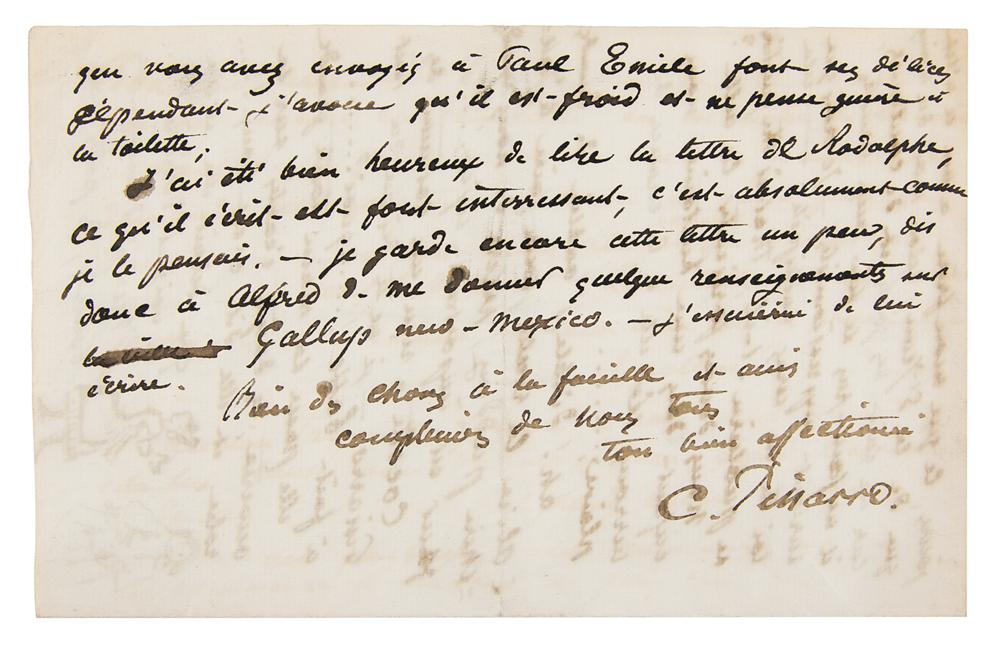 que vous avez envoyés à Paul Emile font ses délices
cépendant j'avoue qu'il est froid et ne pense guère à
la toilette;
J'ai été bien heureux de lire la lettre de Rodolphe,
ce qu'il écrit est fort interressant, c'est absolument comme
je le pensais. — je garde encore cette lettre un peu, dis
donc à Alfred de me donner quelque renseignements sur
Gallup new-mexico. — j'essaierai de lui
écrire.
Bien des choses à la famille et amis
compliments de nous tous
ton bien affectionné
C. Pissarro.